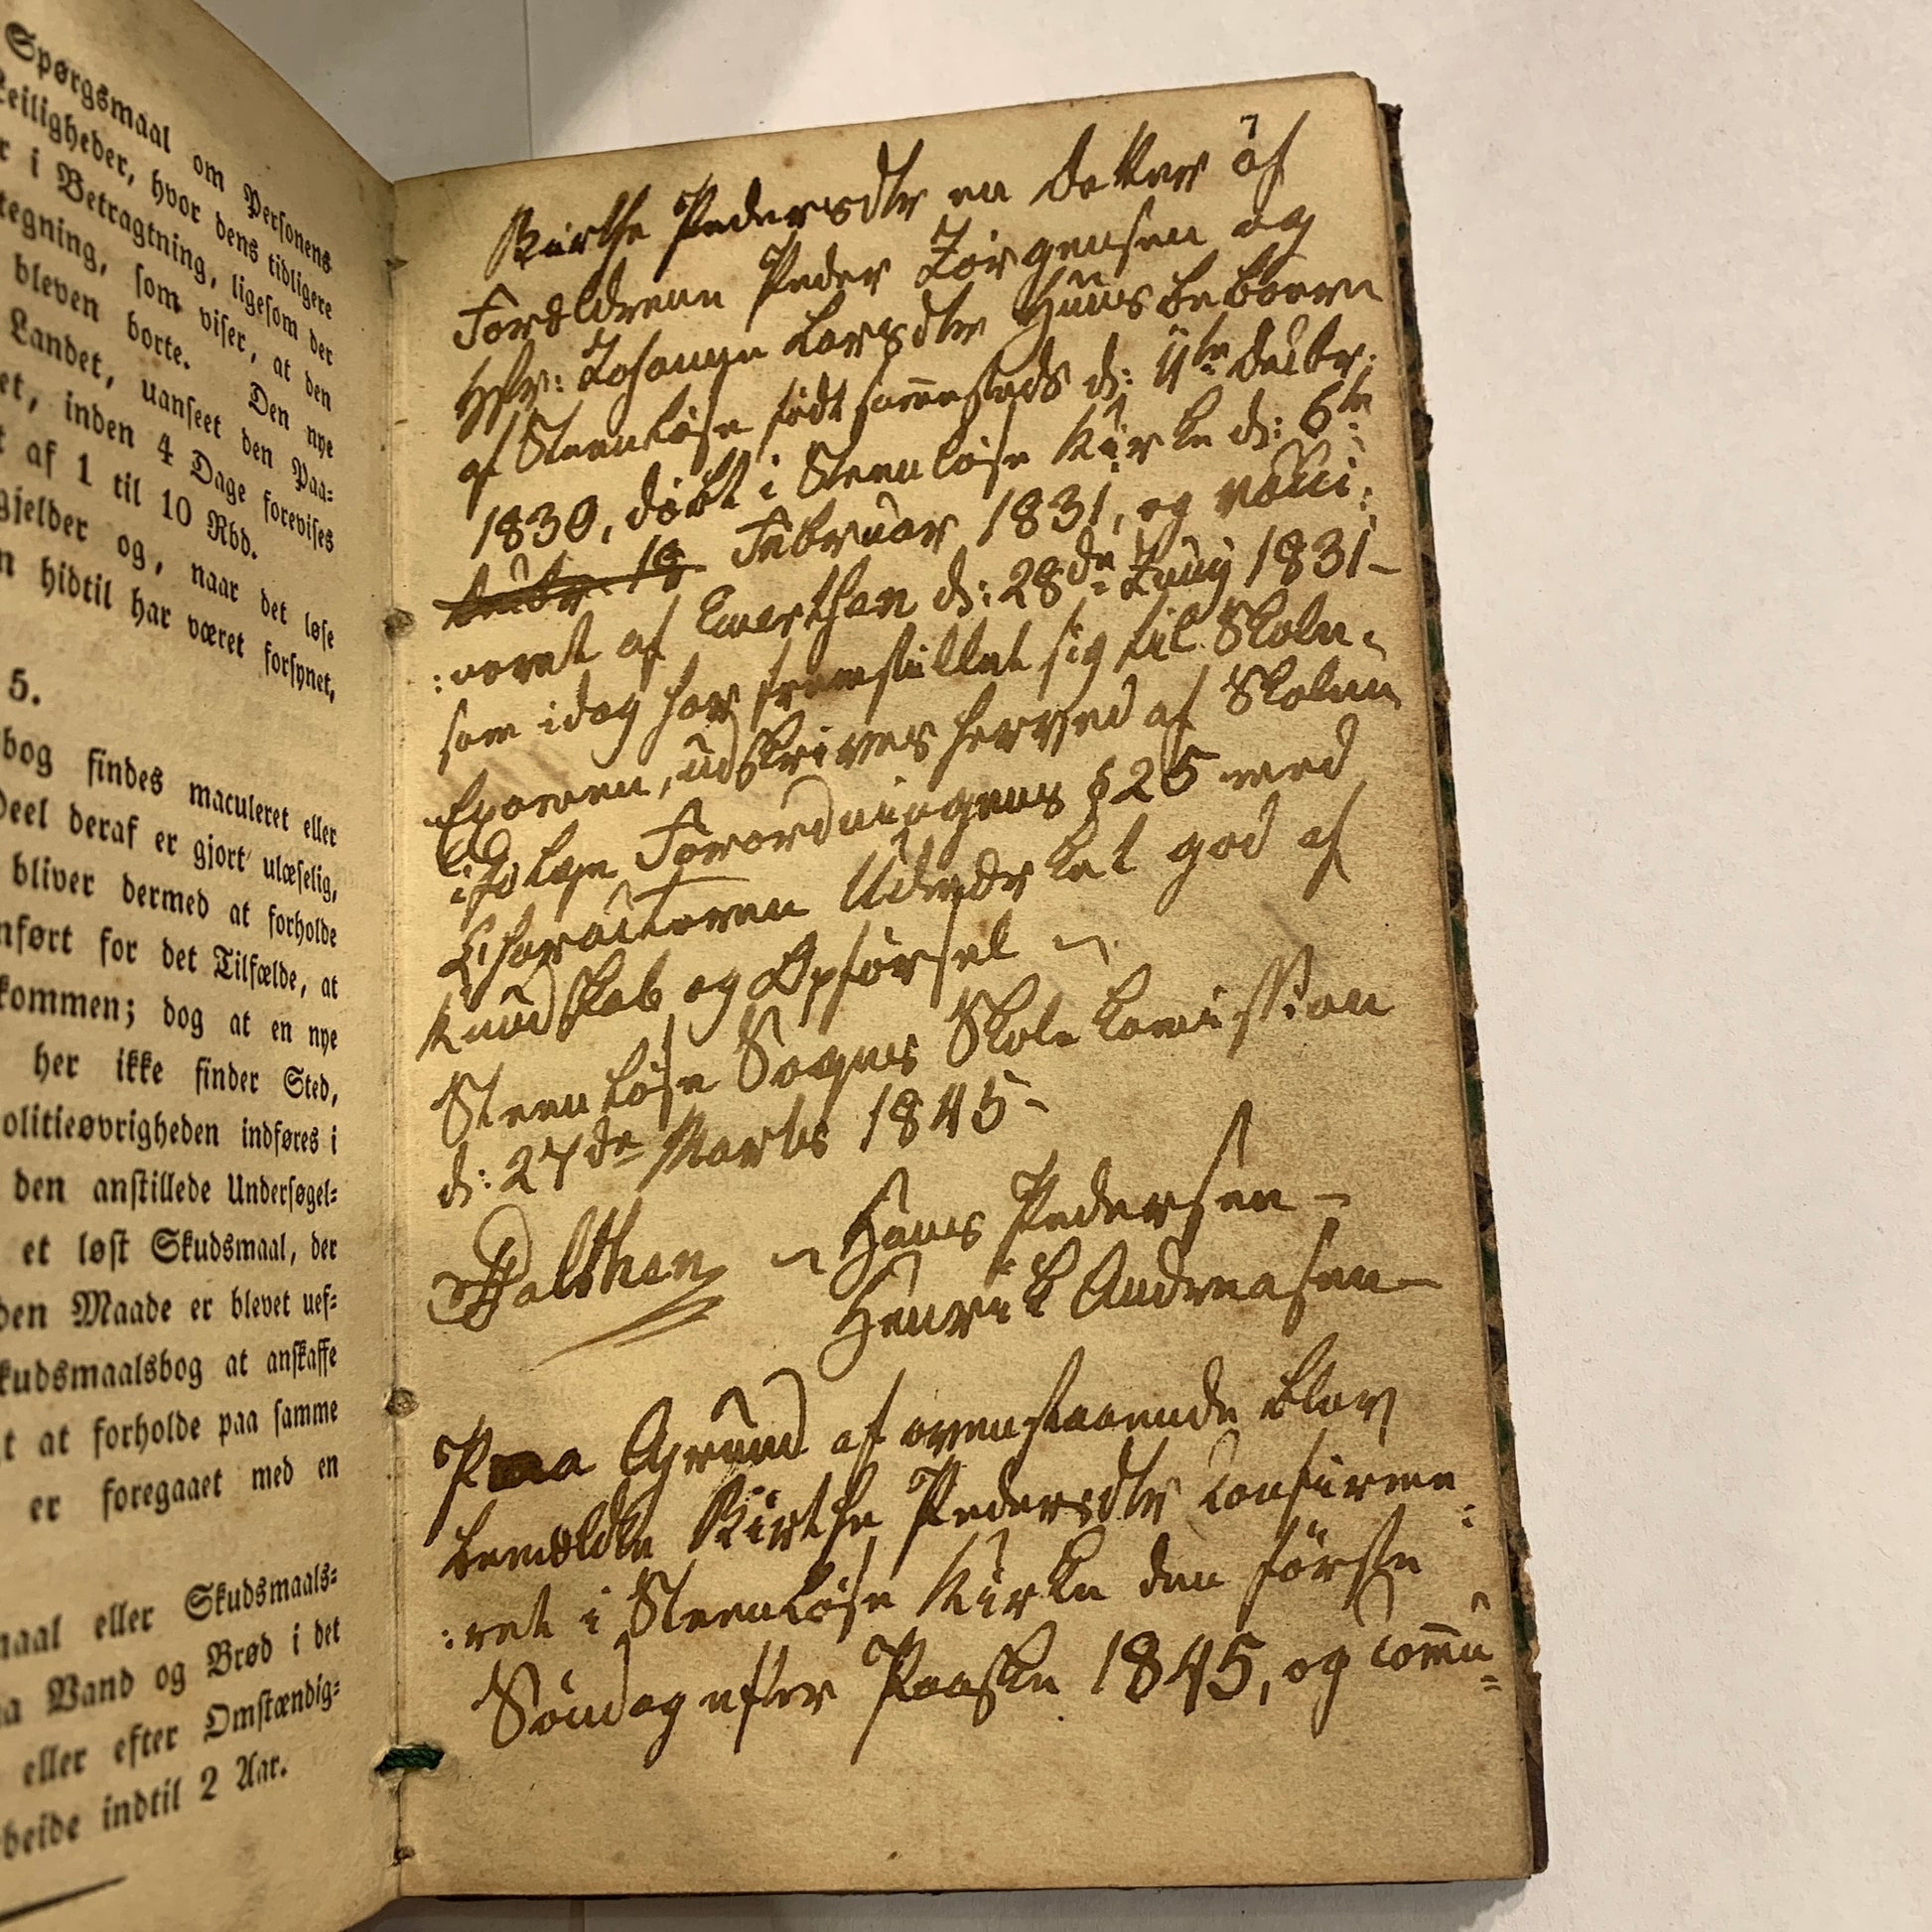 Spørgsmaal om Personens
Leiligheder, hvor dens tidligere
r i Betragtning, ligesom der
tegning, som viser, at den
bleven borte. Den nye
Landet, uanseet den Paa=
et, inden 4 Dage forevises
t af 1 til 10 Rbd.
gjelder og, naar det løse
n hidtil har været forsynet,
5.
bog findes maculeret eller
Deel deraf er gjort ulæselig,
bliver dermed at forholde
nført for det Tilfælde, at
kommen; dog at en nye
her ikke finder Sted,
olitieøvrigheden indføres i
den anstillede Undersøgel=
et løst Skudsmaal, der
den Maade er blevet uef=
kudsmaalsbog at anskaffe
t at forholde paa samme
er foregaaet med en
maal eller Skudsmaals=
a Vand og Brød i det
eller efter Omstændig=
beide indtil 2 Aar.
7
Birthe Pedersdtr en Datter af
Forældrene Peder Jørgensen og
Hstr: Johanne Larsdtr Huusbeboere
af Steenløse født sammesteds d: 11te Decbr:
1830, døbt i Steenløse Kirke d: 6te
Februar 1831, og vacci:
:neret af d: 28de Juny 1831-
som idag har fremstillet sig til Skole-
Examen, udskrives herved af Skolen
ifølge Forordningens § 25 med
Characteren Udmærket god af
Kundskab og Opførsel
Steenløse Sogns Skole Commission
d: 27de Marts 1845-
Balthen Hans Pedersen -
Henrik Andreasen -
Paa Grund af ovenstaaende blev
bemældte Birthe Pedersdtr confirme:
:ret i Steenløse Kirke den første
Søndag efter Paaske 1845, og commu=